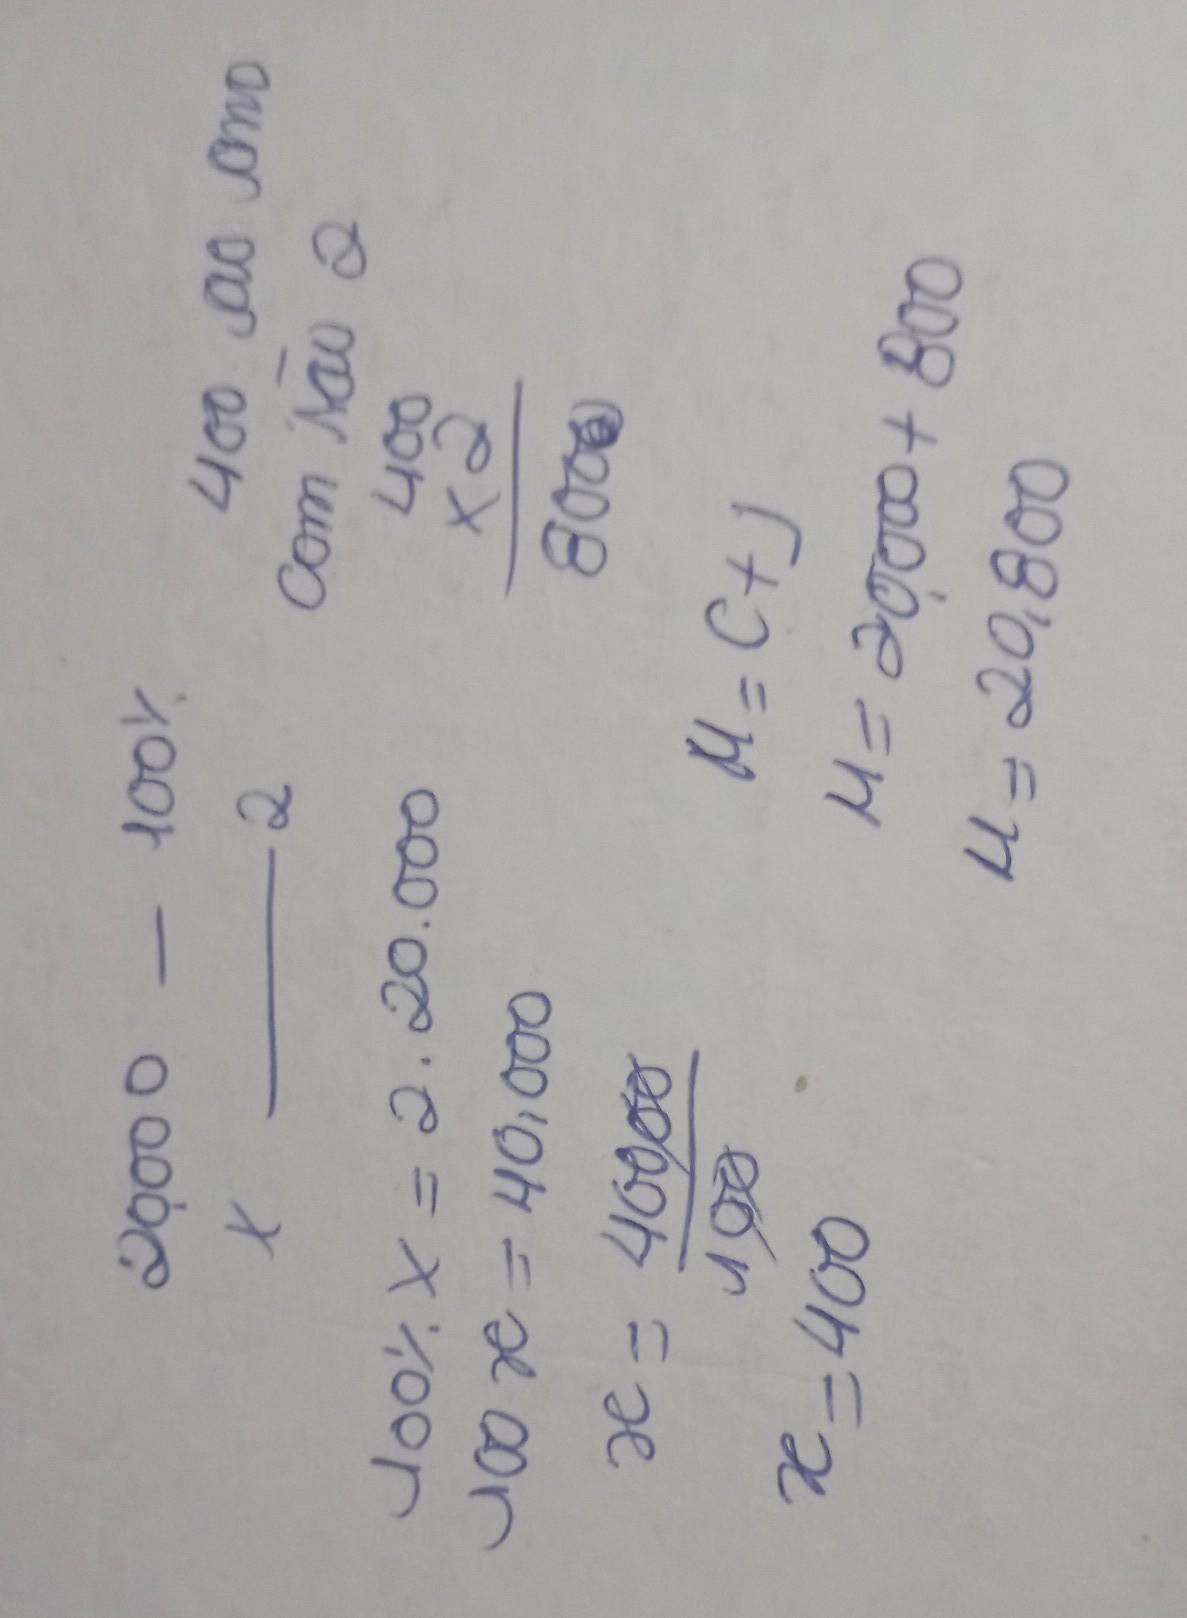 20,000 — 100%
x — 2
100% x = 2.20.000
100 x = 40,000
x = 40000
100
x = 400
400 ao ano
Com São 2
400
x 2
800
M = C + J
M = 20,000 + 800
M = 20,800